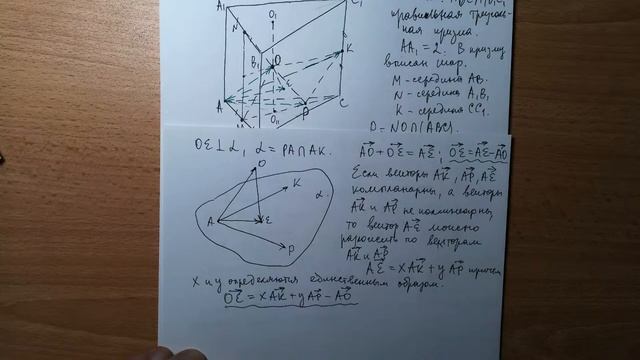 A₁
C₁
правильная треуголь-
ная призма.
AA₁ = 2. В призму
вписан шар.
M - середина AB.
N - середина A₁B₁
K - середина CC₁
N
O₁
B₁
O
K
E
A
P
C
O₁₁
M
OE ⊥ α, α = PA ∩ AK.
O
K
α
A
E
P
AO + OE = AE; OE = AE - AO
Если векторы AK, AP, AE
компланарны, а векторы
AK и AP не коллинеарны,
то вектор AE можно
разложить по векторам
AK и AP
AE = xAK + yAP причем
x и y определяются единственным образом.
OE = xAK + yAP - AO